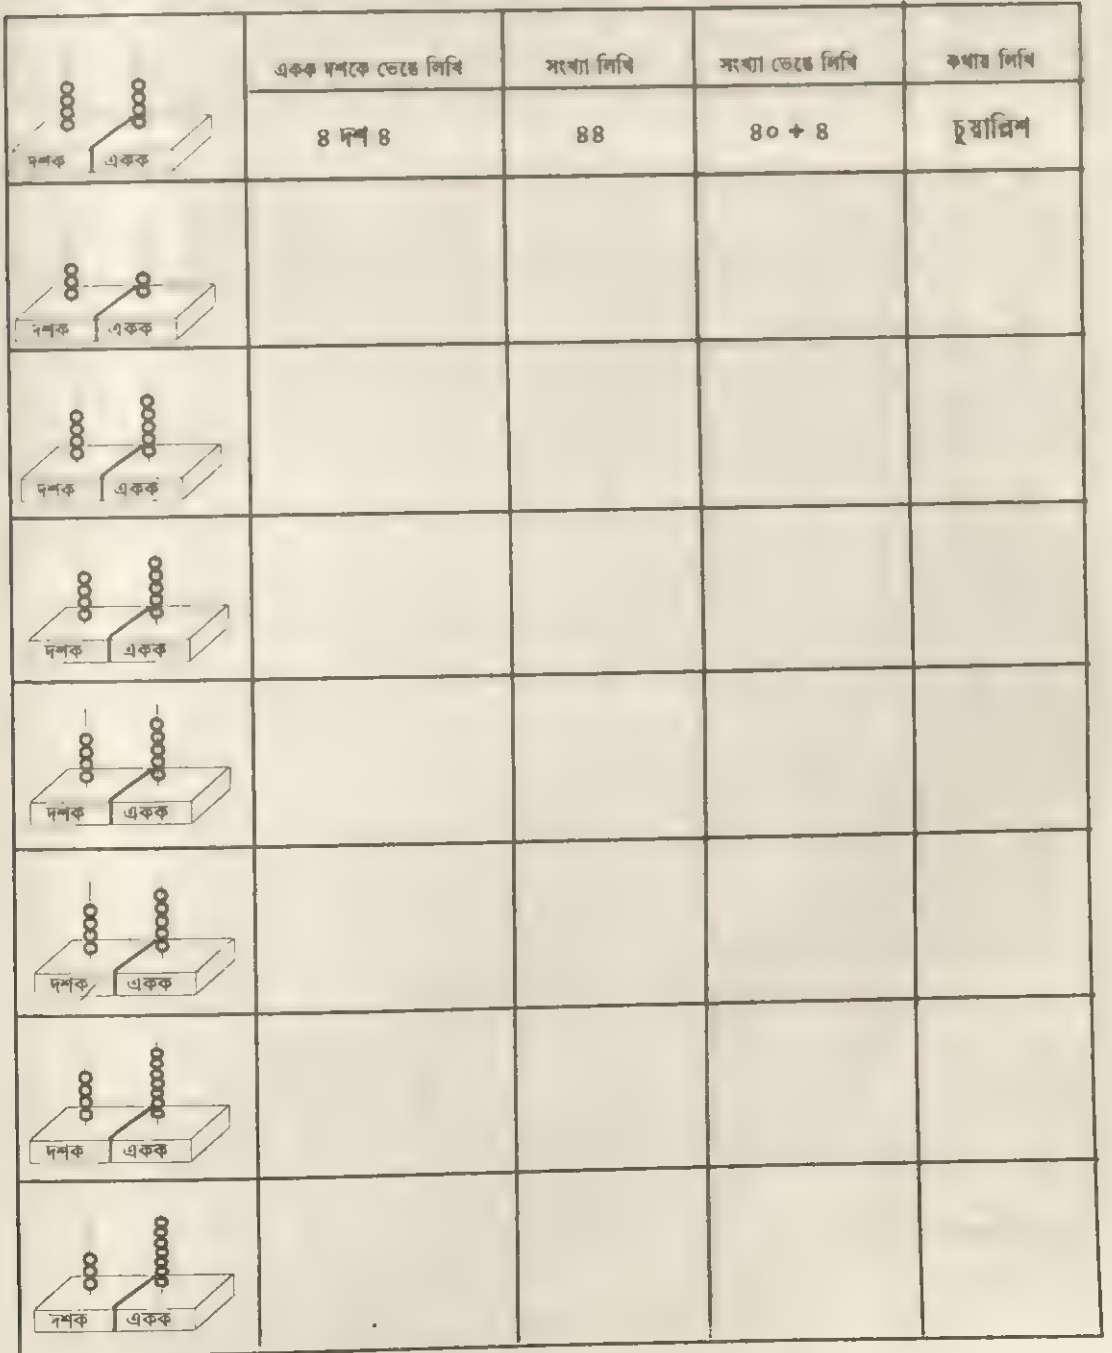 একক দশকে ভেঙে লিখি সংখ্যা লিখি সংখ্যা ভেঙে লিখি কথায় লিখি
৪ দশ ৪ ৪৪ ৪০ + ৪ চুয়াল্লিশ
দশক একক
দশক একক
দশক একক
দশক একক
দশক একক
দশক একক
দশক একক
দশক একক